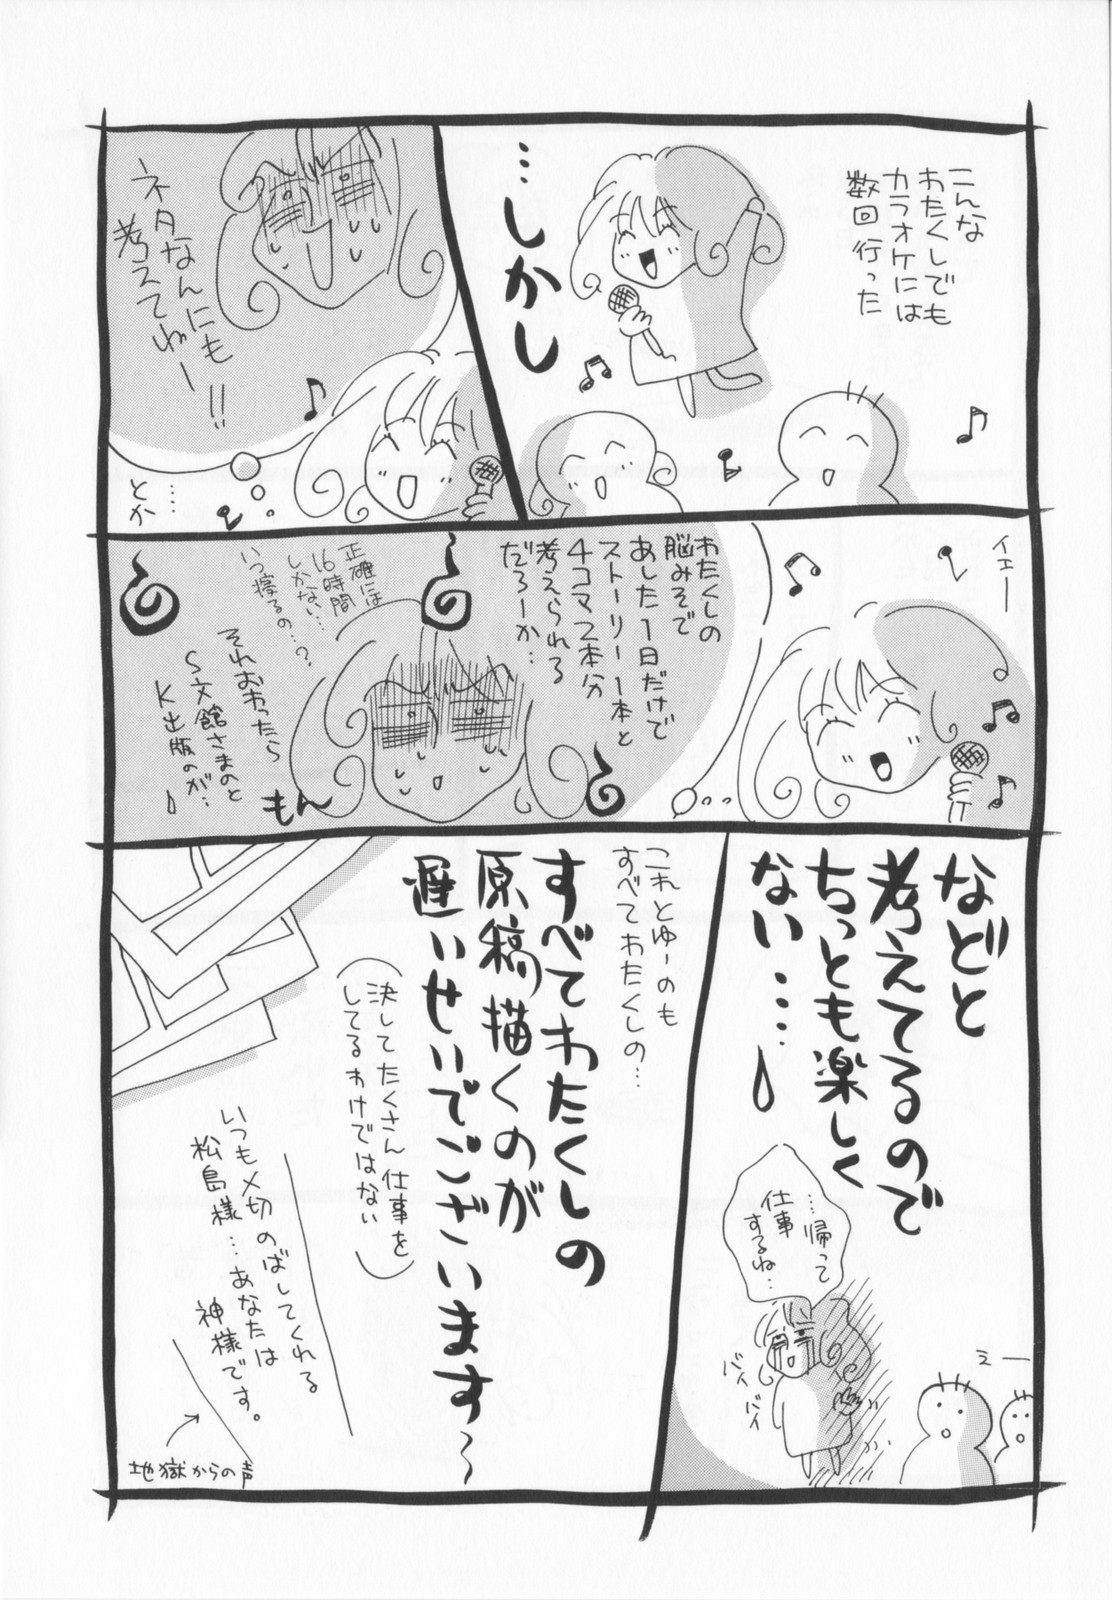 こんな
わたくしでも
カラオケには
数回行った
…しかし
ネタなんにも
考えてねー!!
…とか
イェー
わたくしの
脳みそで
あした1日だけで
ストーリー1本と
4コマ2本分
考えられる
だろーか…
正確には
16時間
しかない…
いつ寝るの…?
それおわったら
S文館さまのと
K出版のが…
もん
などと
考えてるので
ちっとも楽しく
ない……
…帰って
仕事
するね…
バイ
バイ
えー
これとゆーのも
すべてわたくしの…
すべてわたくしの
原稿描くのが
遅いせいでございます〜
(決してたくさん仕事を
してるわけではない)
いつも〆切のばしてくれる
松島様…あなたは
神様です。
地獄からの声